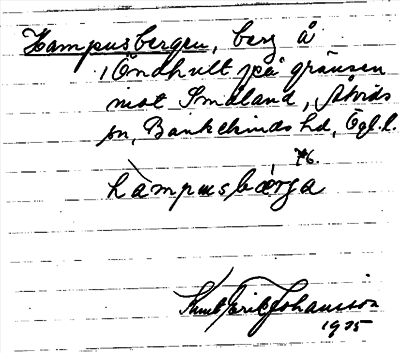 Hampusbergen, berg å
Öndhult på gränsen
mot Småland, Åtvids
sn, Bankekinds hd, Ögl.l.
hàmpusbærja
Knut Erik Johansson
1925